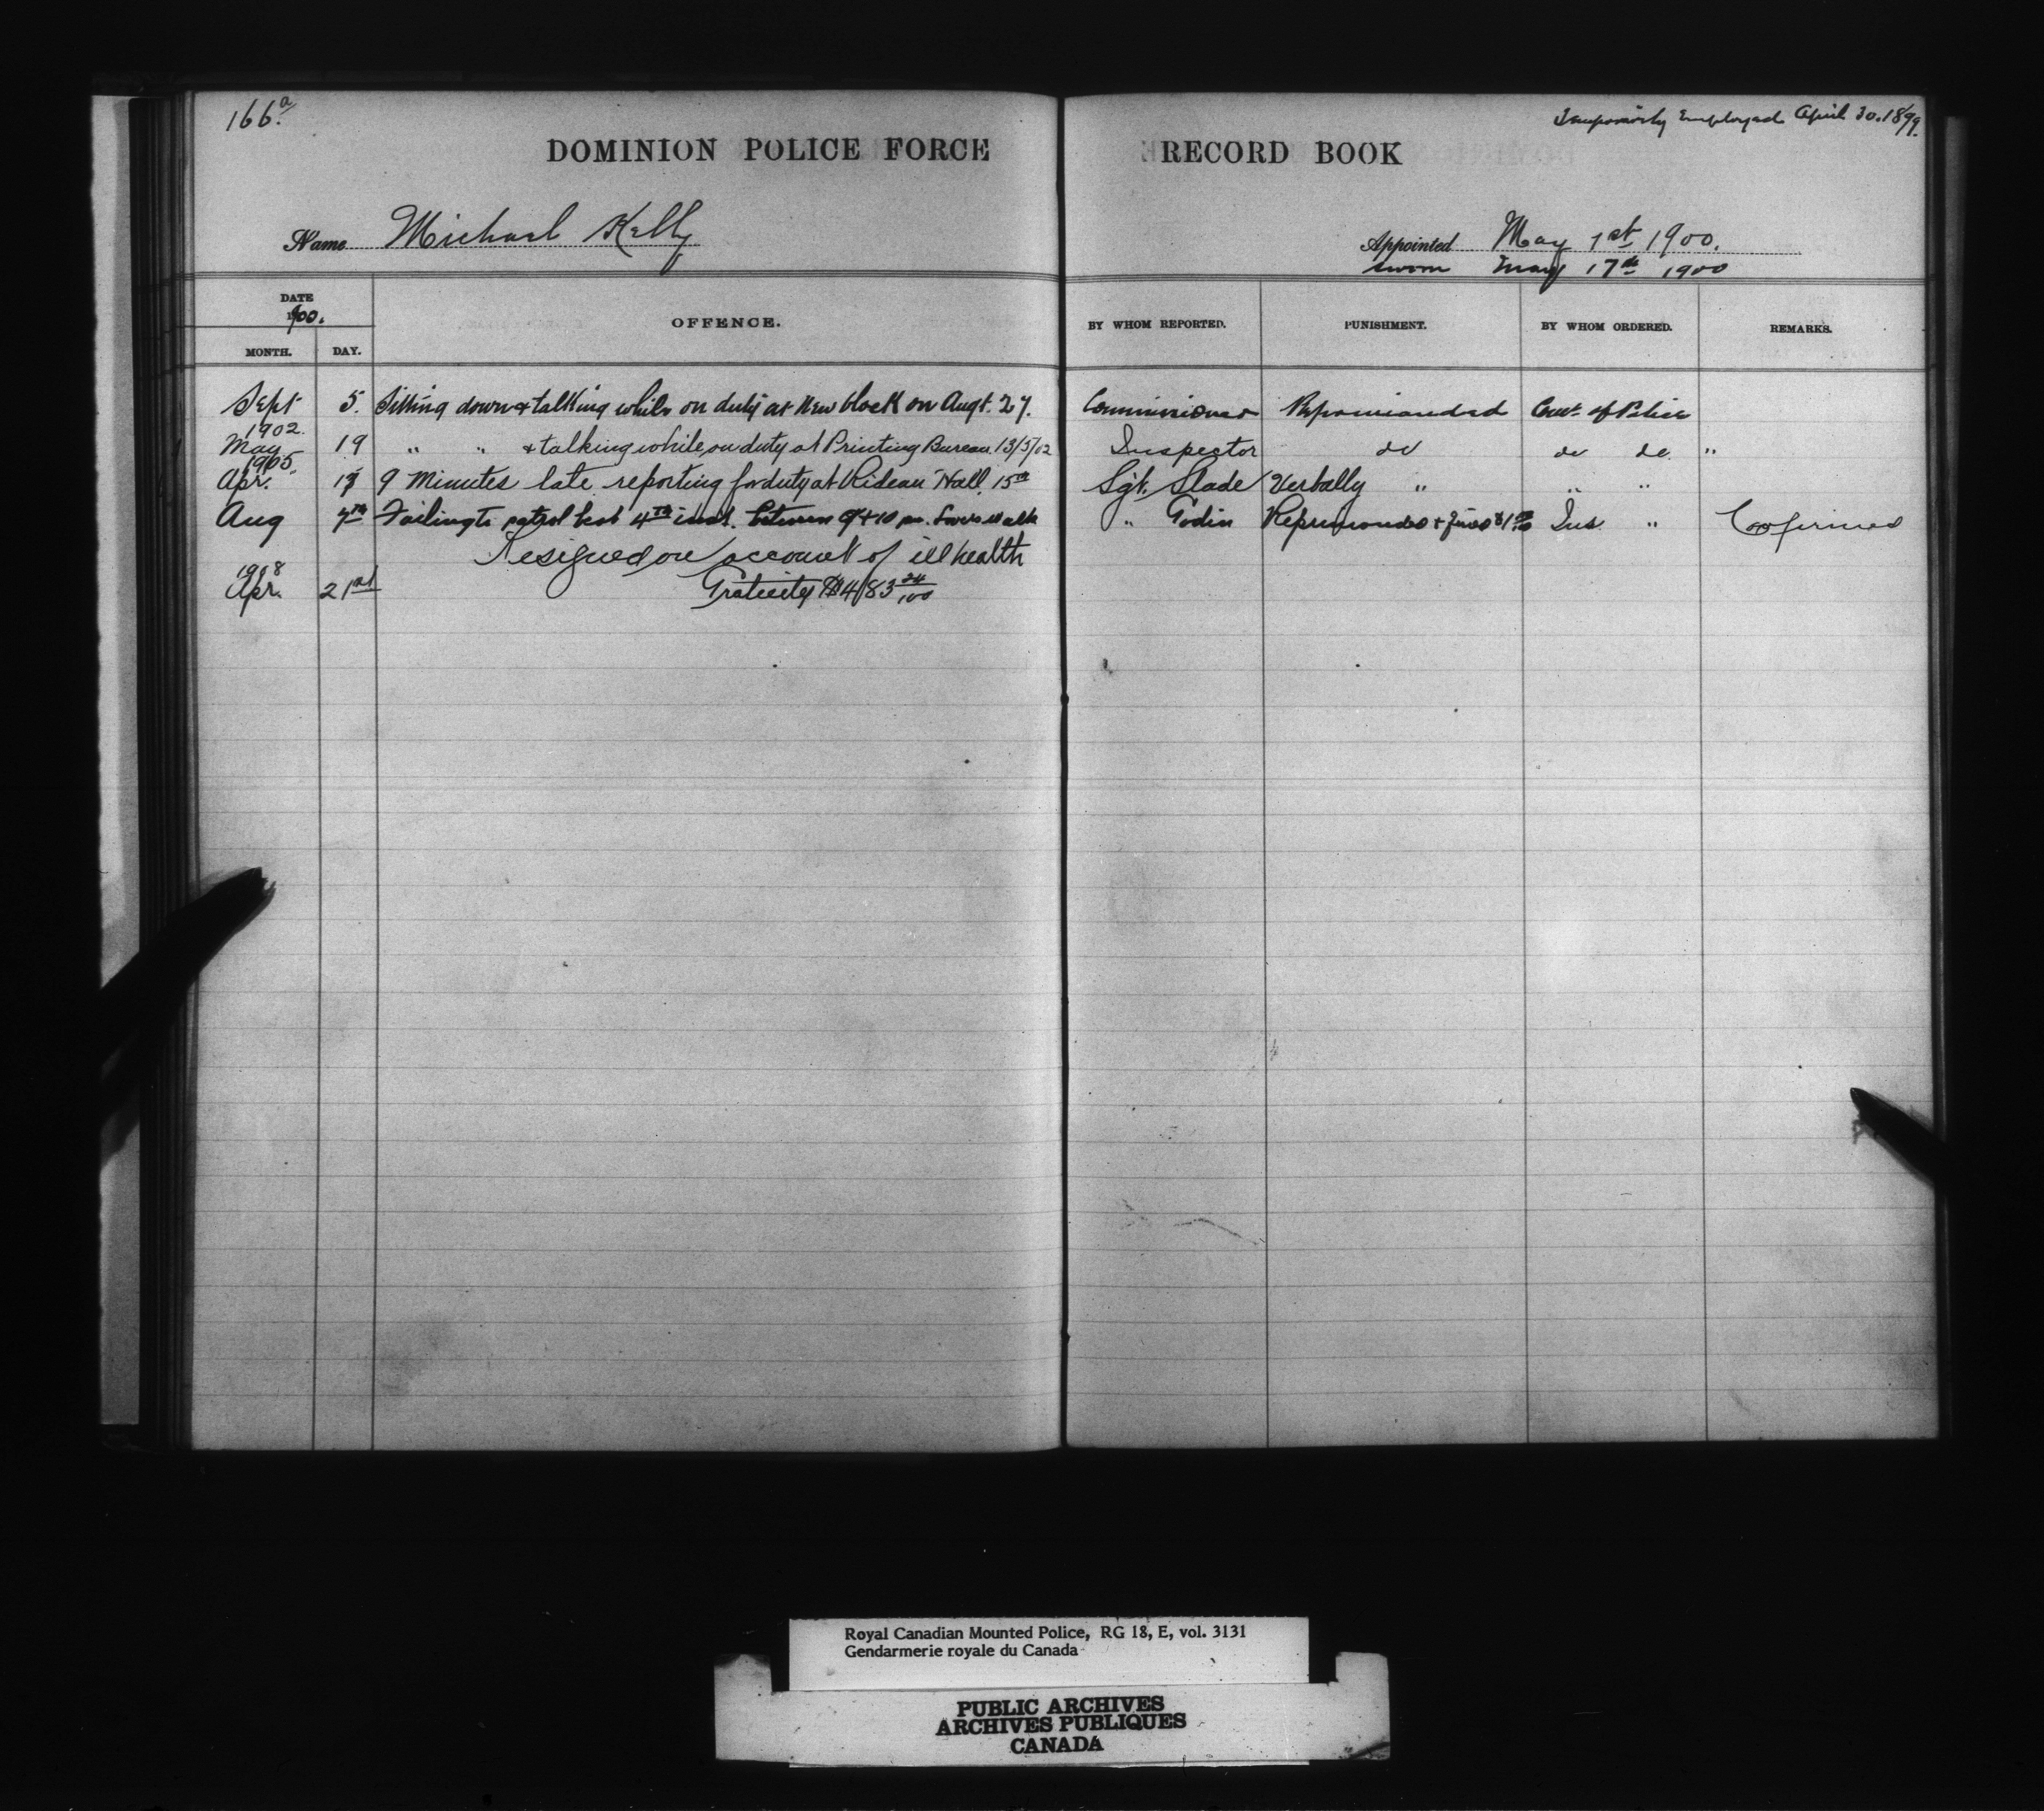 166a.
DOMINION POLICE FORCE
Name Michael Kelly
DATE
1900.
MONTH. DAY. OFFENCE.
Sept 5. Sitting down & talking while on duty at New block on Augt. 27.
1902.
May 19 " " & talking while on duty at Printing Bureau 13/5/02
1905.
Apr. 17 9 Minutes late reporting for duty at Rideau Hall 15th
Aug 7th Failing to patrol beat 4th inst. between 9 & 10 pm. Lovers Walk
Resigned on account of ill health
1908
Apr. 21st Gratuity $483 24/100
Temporarily Employed April 30. 1899.
RECORD BOOK
Appointed May 1st 1900.
Sworn May 17th 1900
BY WHOM REPORTED. PUNISHMENT. BY WHOM ORDERED. REMARKS.
Commissioner Reprimanded Comr. of Police
Inspector do do do "
Sgt. Slade Verbally " " "
" Godin Reprimanded & fined $1.00 Ins. " Cofirmed
Royal Canadian Mounted Police, RG 18, E, vol. 3131
Gendarmerie royale du Canada
PUBLIC ARCHIVES
ARCHIVES PUBLIQUES
CANADA